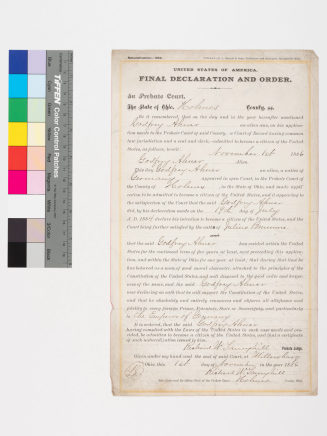 UNITED STATES OF AMERICA.
FINAL DECLARATION AND ORDER.
In Probate Court.
The State of Ohio, Holmes County, ss.
Be it remembered, that on the day and in the year hereafter mentioned
Godfrey Abner an alien, on this application
made to the Probate Court of said County, a Court of Record having common
law jurisdiction and a seal and clerk, admitted to become a citizen of the United
States, as follows, to-wit:
November 1st 1886
Godfrey Abner Alien.
day Godfrey Abner an alien, a native of
Germany in open Court, in the Probate Court of
the County of Holmes in the State of Ohio, and made application
to be admitted to become a citizen of the United States, and it appearing to
the satisfaction of the Court that the said Godfrey Abner
did, by his declaration made on the 19th day of July
A. D. 188 declare his intention to become a citizen of the United States, and the
Court being further satisfied by the oaths of
and
that the said Godfrey Abner has resided within the
United States for the continued term of five years at least, next preceding this application,
and within the State of Ohio, for one year at least; and that during that time
he has behaved as a man of good moral character, attached to the principles of the
Constitution of the United States, and well disposed to the good order and happiness
of the same, and the said Godfrey Abner
now declaring on oath that he will support the Constitution of the United States,
and that he absolutely and entirely renounces and abjures all allegiance
and fidelity to every foreign Prince, Potentate, State or Sovereignty, and particularly
to The Emperor of Germany
It is ordered, that the said Godfrey Abner
having complied with the Laws of the United States in such case made and provided,
be admitted to become a citizen of the United States, and that a certificate
of such naturalization issue to him.
Richard W. Probate Judge.
Given under my hand and the seal of said Court, at Millersburg
Ohio, this 1st day of November in the year 1886
Richard W.
Holmes County, Ohio.
TIFFEN Color Control Patches